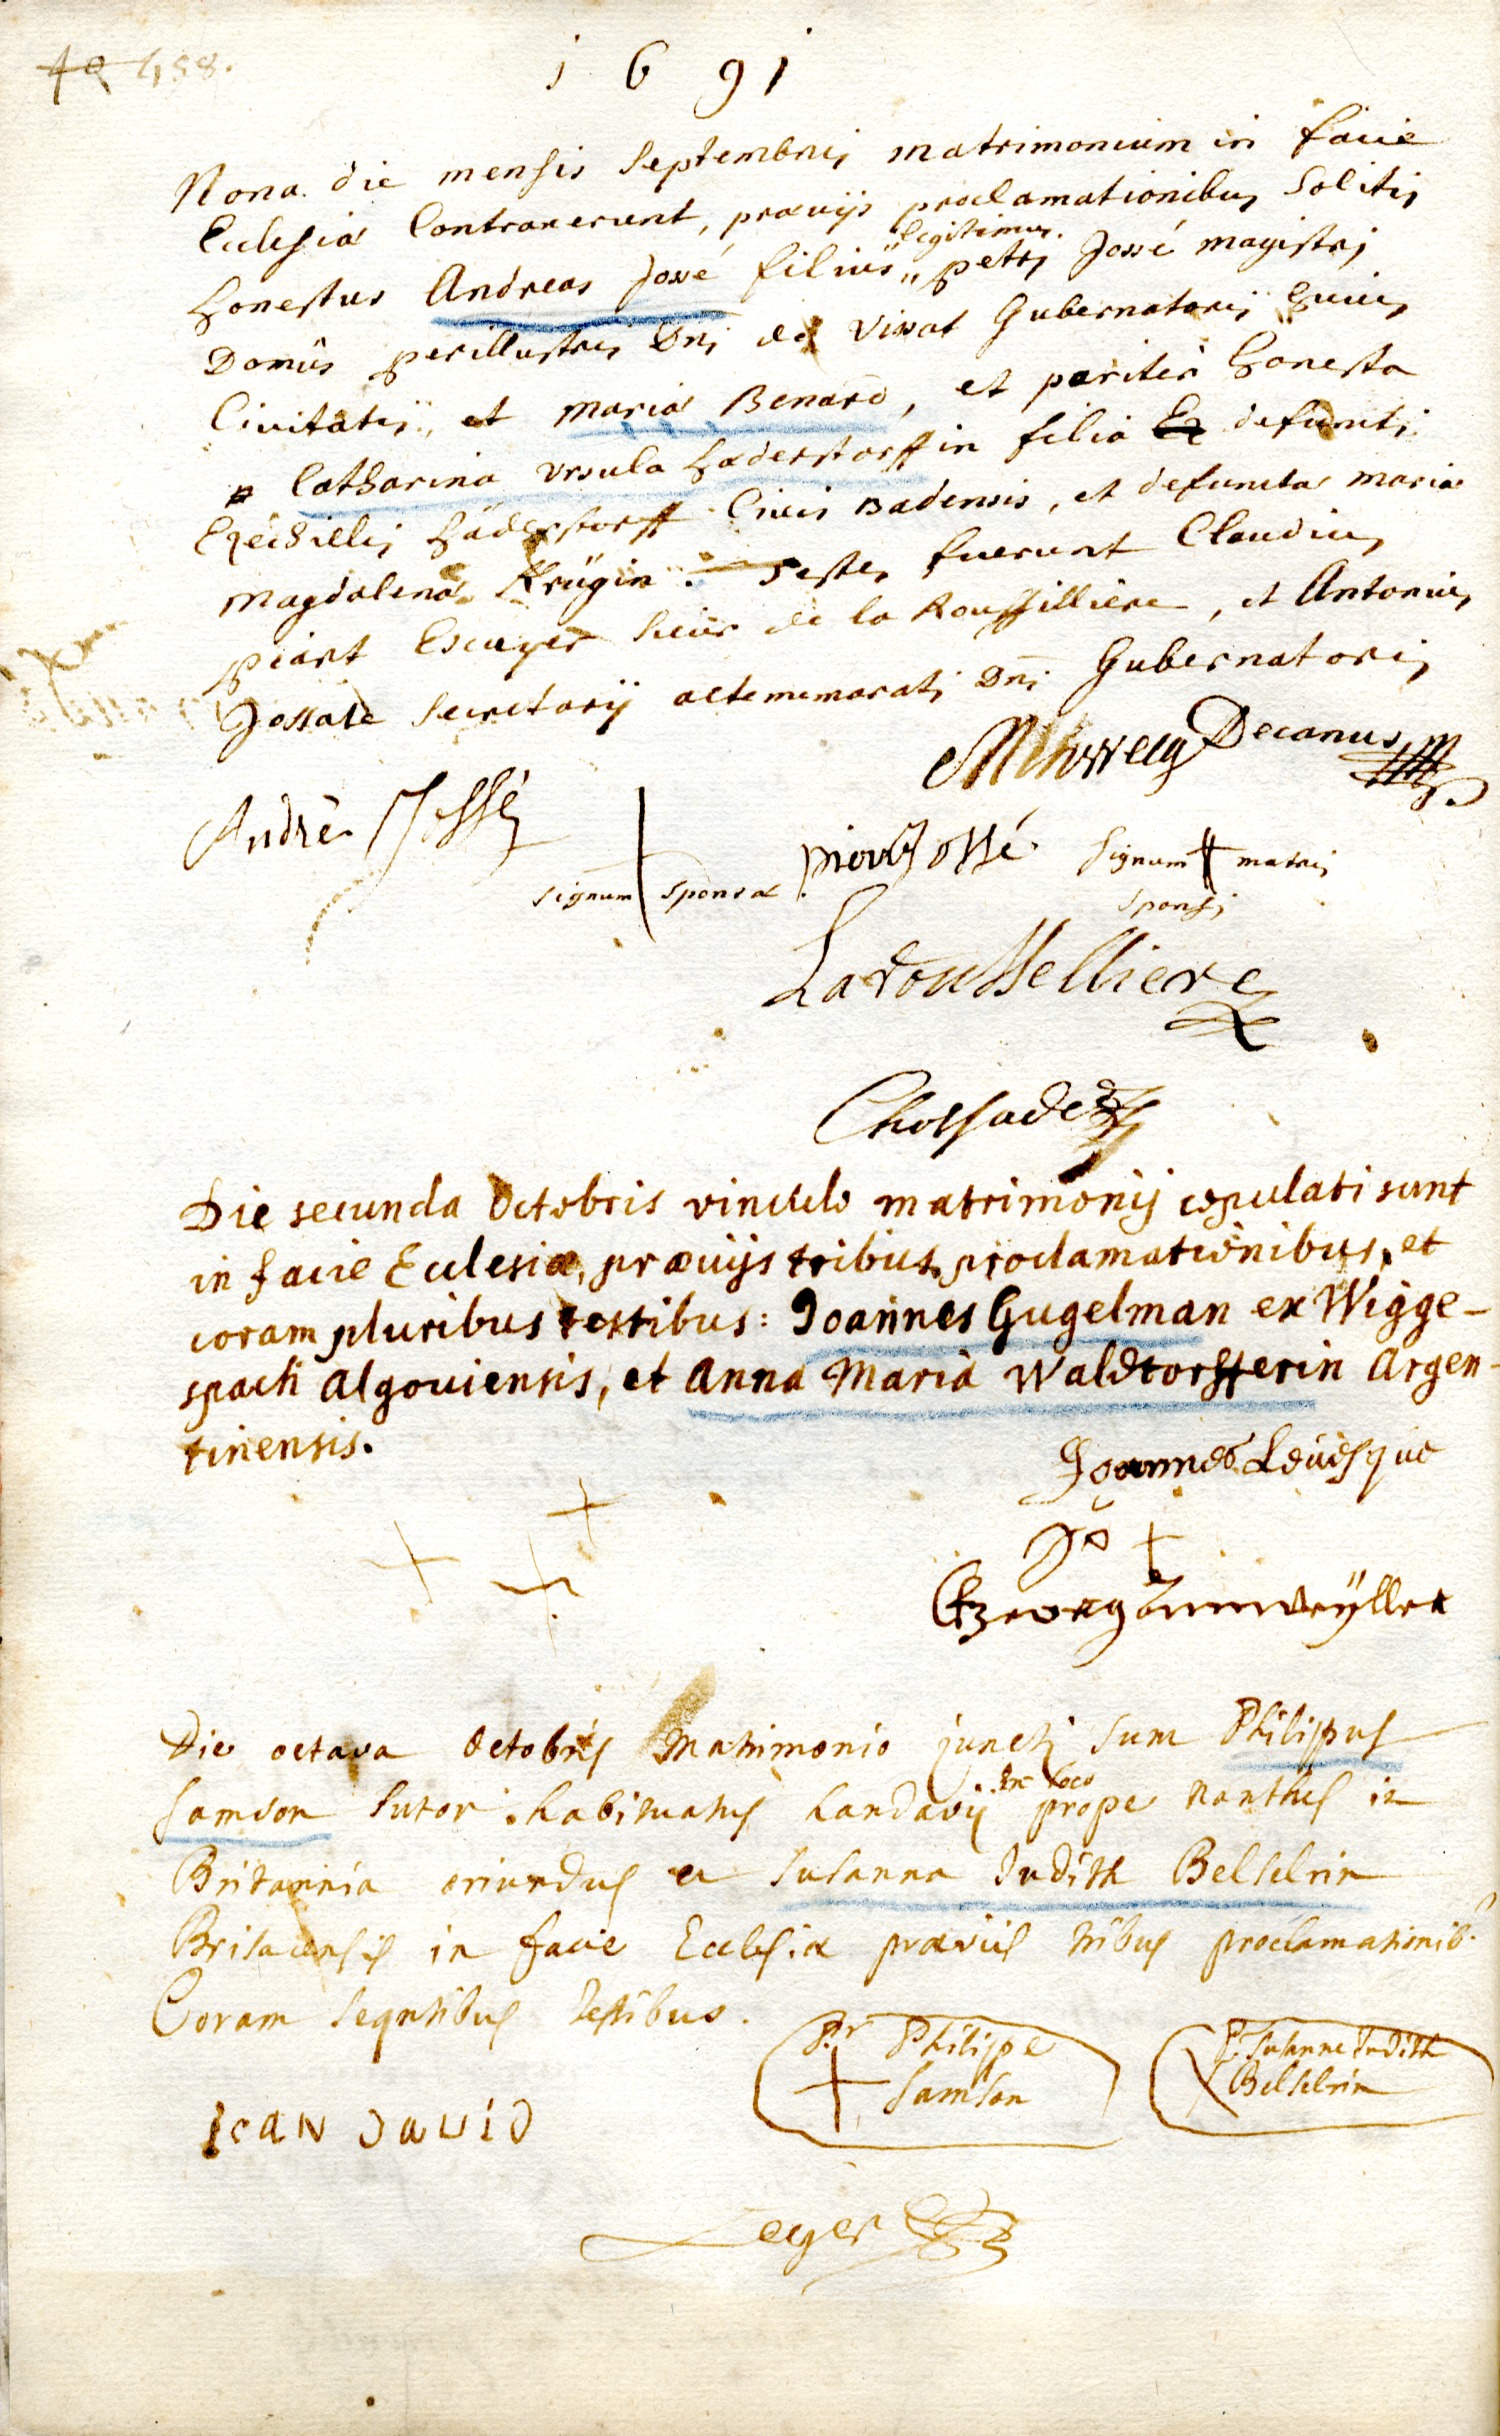 458.
1691
Nona die mensis Septembris matrimonium in facie
Ecclesiæ Contraxerunt, præviis proclamationibus solitis
legitimus.
honestus Andreas Jossé filius petri Jossé magistri
Domûs perillustris Dni de Vissat Gubernatoris huius
Civitatis, et mariæ Benard, et pariter honesta
Catharina Ursula haderstorffin filia defuncti
Ezechielis häderstorff Civis Badensis, et defunctæ mariæ
magdalenæ Krügin. Testes fuerunt Claudius
piart Escuyer sieur de la Roussilliere, et Antonius
Jossade Secretarij altememorati Dni Gubernatoris
Decanus
André Jossé
signum sponsæ
pierre Jossé
signum matris
sponsi
Larousselliere
Chossade
Die secunda Octobris vinculo matrimonij copulati sunt
in facie Ecclesiæ, præuijs tribus proclamationibus, et
coram pluribus testibus: Joannes Gugelman ex Wigge-
spach Algouiensis, et Anna Maria Waldtorfferin Argen-
tinensis.
Joannes Leuesque
Die octava Octobris Matrimonio juncti sunt Philippus
Samson Sutor habituatus Landavij in loco prope Nanthes in
Britannia oriundus et Susanna Judith Belselrin
Brisacensis in facie Ecclesiæ præviis tribus proclamationib.
Coram seqntibus testibus.
Pr Philippe
Samson
P. Susanne Judith
Belselrin
Jean David
Leger